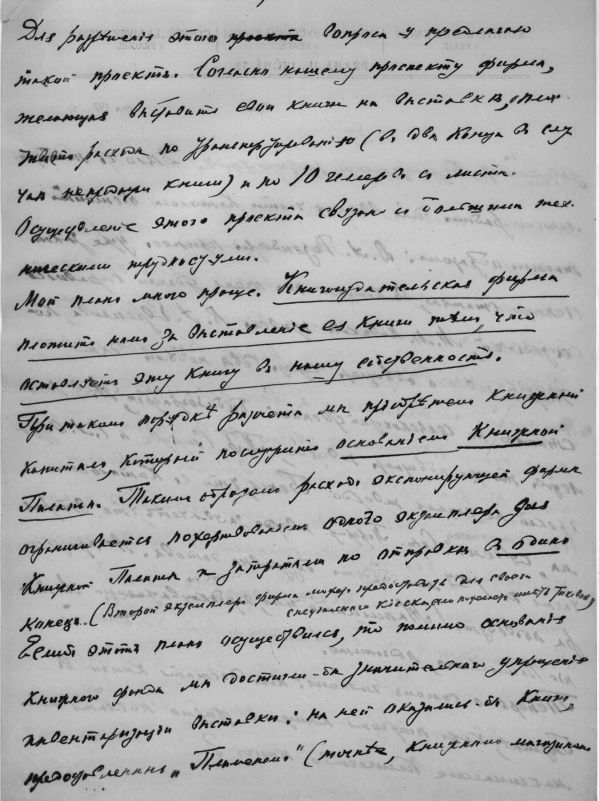 Для разрѣшенія этого вопроса я предлагаю
такой проектъ. Согласно нашему проспекту фирма,
желающая выставить свои книги на выставкѣ,
расходы по транспортированію (въ два конца въ слу
чаѣ непродажи книги) и по 10 геллеровъ съ листа.
Осуществленіе этого проекта связано съ большими тех-
ническими трудностями.
Мой планъ много проще. Книгоиздательская фирма
платитъ намъ за выставленіе ея книги тѣмъ, что
оставляетъ эту книгу въ нашу собственность.
При такомъ порядкѣ расчета мы пріобрѣтемъ книжный
капиталъ, который послужитъ основаніемъ Книжной
Палаты. Такимъ образомъ расходъ экспонирующей фирмы
ограничивается пожертвованіемъ одного экземпляра для
Книжной Палаты и затратами по отправкѣ въ одинъ
конецъ. (Второй экземпляръ фирма можетъ предоставить для своего
спеціальнаго кіоска, если пожелаетъ имѣть таковой)
Если-бъ этотъ планъ осуществился, то помимо основанія
книжнаго фонда мы достигли-бы значительнаго упрощенія
инвентаризаціи выставки: на ней оказались-бы книги,
предоставленныя „Пламенемъ“ (точнѣе, книжнымъ магазиномъ